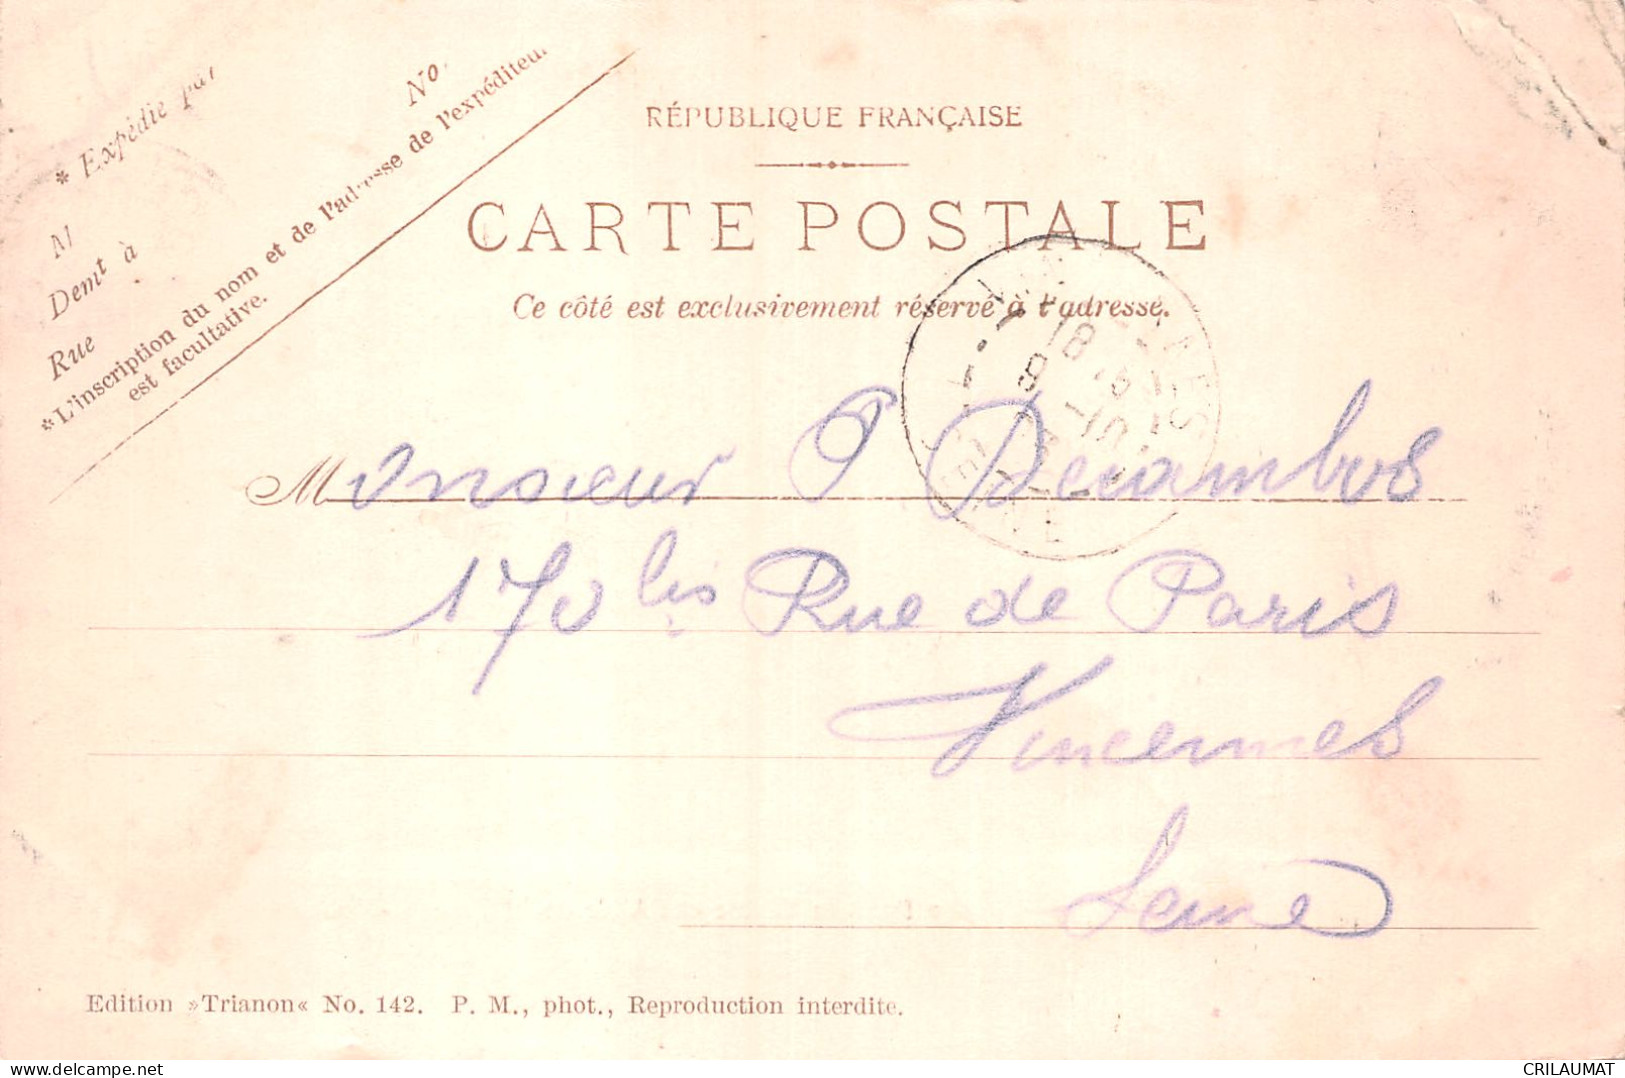 * Expédié par No.
M
Demt à
Rue
*L'inscription du nom et de l'adresse de l'expéditeur
est facultative.
RÉPUBLIQUE FRANÇAISE
CARTE POSTALE
Ce côté est exclusivement réservé à l'adresse.
Monsieur P Decambos
170 bis Rue de Paris
Vincennes
Seine
Edition »Trianon« No. 142. P. M., phot., Reproduction interdite.
delcampe.net
CRILAUMAT